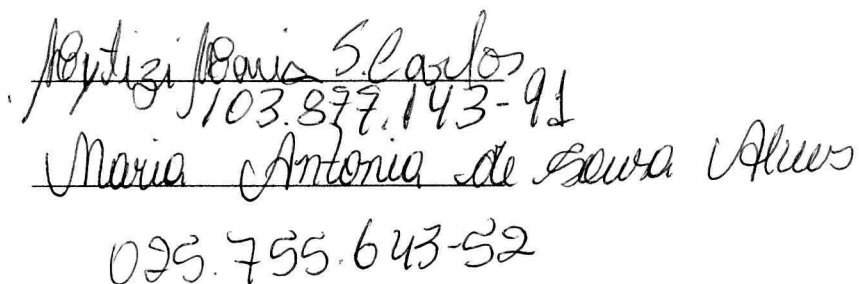 Maria S. Carlos
103.877.143-91
Maria Antonia de Sousa Alves
025.755.643-52